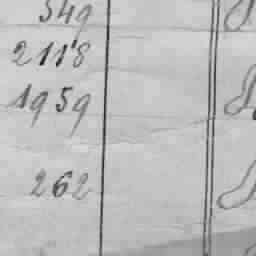 549
2118
1959
262